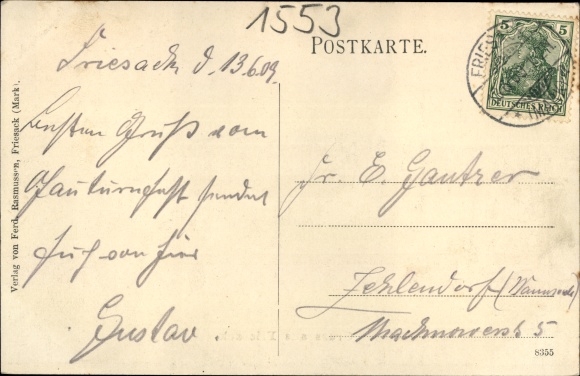 1553
POSTKARTE.
FRIESACK
5 5
DEUTSCHES REICH
Friesack d. 13.6.09.
Besten Gruß vom
Gauturnfest sendet
Euch von hier
Gustav.
Verlag von Ferd. Rasmussen, Friesack (Mark).
Hr. E. Gautzer
Zehlendorf (Wannseeb.)
Machnowerstr. 5
8355